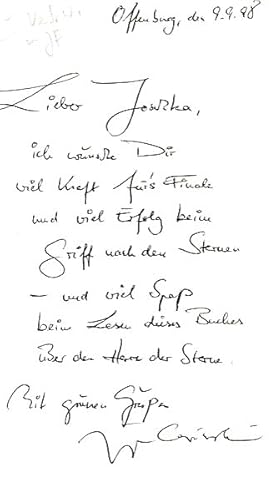 Offenburg, den 9.9.98
Lieber Joschka,
ich wünsche Dir
viel Kraft für's Finale
und viel Erfolg beim
Griff nach den Sternen
– und viel Spaß
beim Lesen dieses Buches
über den Herrn der Sterne.
Mit grünen Grüßen